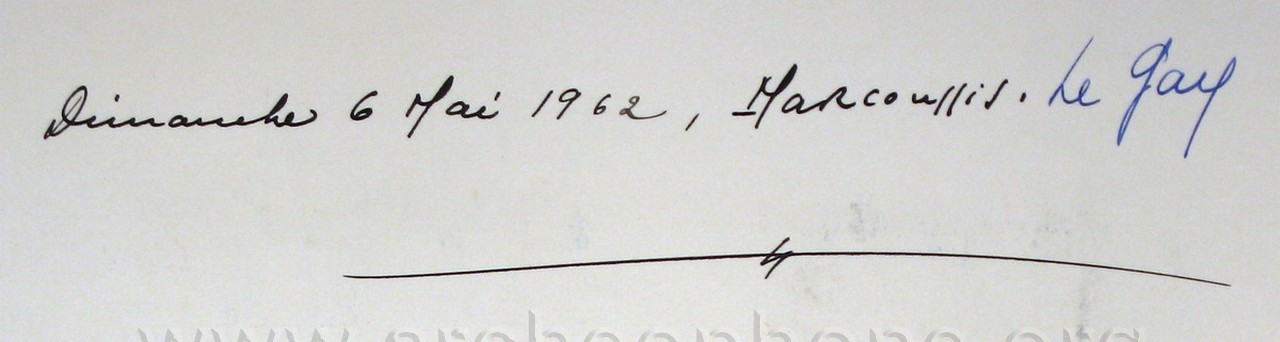 Dimanche 6 Mai 1962, Marcoussis. Le Gay